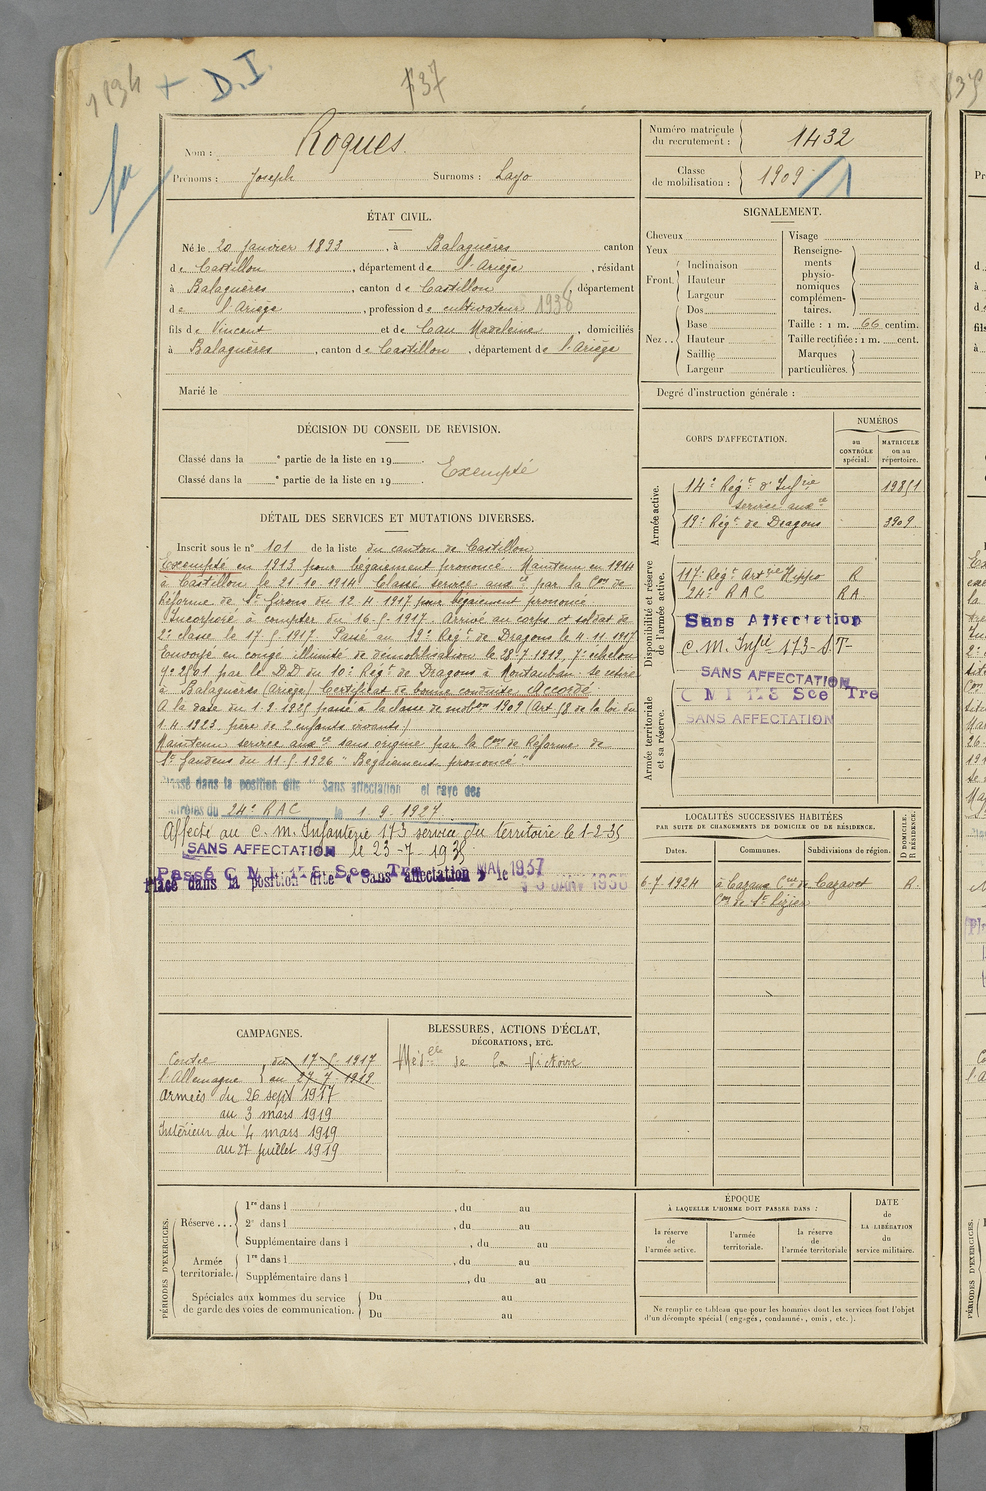 1134 + D.I. 737
Nom : Roques.
Prénoms : Joseph Surnoms : Layo
Numéro matricule du recrutement : 1432
Classe de mobilisation : 1909
ÉTAT CIVIL.
Né le 20 Janvier 1893, à Balaguères canton
de Castillon, département de l'Ariège, résidant
à Balaguères, canton de Castillon, département
de l'Ariège, profession de cultivateur 1938
fils de Vincent et de Cau Madeleine, domiciliés
à Balaguères, canton de Castillon, département de l'Ariège
Marié le
SIGNALEMENT.
Cheveux
Yeux
Front. Inclinaison
Hauteur
Largeur
Nez .. Dos
Base
Hauteur
Saillie
Largeur
Visage
Renseigne-
ments
physio-
nomiques
complémen-
taires.
Taille : 1 m. 66 centim.
Taille rectifiée : 1 m. cent.
Marques
particulières.
Degré d'instruction générale :
DÉCISION DU CONSEIL DE REVISION.
Classé dans la e partie de la liste en 19
Classé dans la e partie de la liste en 19
Exempté
DÉTAIL DES SERVICES ET MUTATIONS DIVERSES.
Inscrit sous le n° 101 de la liste du canton de Castillon
Exempté en 1913 pour bégaiement prononcé. Maintenu en 1914
à Castillon le 21.10.1914 Classé service auxre par la Con de
Réforme de St Girons du 12.4.1917 pour bégaiement prononcé
Incorporé à compter du 16.5.1917. Arrivé au corps et soldat de
2e classe le 17.5.1917. Passé au 19e Régt de Dragons le 4.11.1917
Envoyé en congé illimité de démobilisation le 28.7.1919, 7e échelon
par le DD du 10e Régt de Dragons à Montauban. Se retire
à Balaguères (Ariège) Certificat de bonne conduite Accordé
A la date du 1.9.1925 passé à la classe de mobon 1909 (Art 58 de la loi du
1.4.1923, père de 2 enfants vivants)
Maintenu service auxre sans origine par la Con de Réforme de
St Gaudens du 11.5.1926 "Bégaiement prononcé"
Classé dans la position dite "Sans affectation" et rayé des
contrôles du 24e RAC le 1.9.1927.
Affecté au C.M. Infanterie 173 service du territoire le 1-2-35
SANS AFFECTATION le 23-7-1935
Passé C M I 173 Sce Tre MAI 1937
Placé dans la position dite « Sans affectation » le JANV 1938
CORPS D'AFFECTATION.
NUMÉROS
au CONTRÔLE spécial.
MATRICULE ou au répertoire.
Armée active.
14e Régt d'Infrie 19851
service auxre
19e Régt de Dragons 3909
Disponibilité et réserve de l'armée active.
117e Régt Artrie Hippo R
24e RAC RA
Sans Affectation
C. M. Infie 173 S.T
SANS AFFECTATION
C M I 173 Sce Tre
SANS AFFECTATION
Armée territoriale et sa réserve.
LOCALITÉS SUCCESSIVES HABITÉES
PAR SUITE DE CHANGEMENTS DE DOMICILE OU DE RÉSIDENCE.
Dates. Communes. Subdivisions de région. D DOMICILE. R RÉSIDENCE.
6.7.1924 à Cazaux Cne de Cazavet R.
Con de St Lizier
CAMPAGNES.
Contre du 17-5-1917
l'Allemagne au 27.7.1919
Armées du 26 sept 1917
au 3 mars 1919
Intérieur du 4 mars 1919
au 27 juillet 1919
BLESSURES, ACTIONS D'ÉCLAT,
DÉCORATIONS, ETC.
Médlle de la Victoire
PÉRIODES D'EXERCICES.
Réserve ... 1re dans l , du au
2e dans l , du au
Supplémentaire dans l , du au
Armée territoriale. 1re dans l , du au
Supplémentaire dans l , du au
Spéciales aux hommes du service
de garde des voies de communication. Du au
Du au
ÉPOQUE
À LAQUELLE L'HOMME DOIT PASSER DANS :
la réserve de l'armée active.
l'armée territoriale.
la réserve de l'armée territoriale
DATE de LA LIBÉRATION du service militaire.
Ne remplir ce tableau que pour les hommes dont les services font l'objet
d'un décompte spécial (engagés, condamnés, omis, etc.).